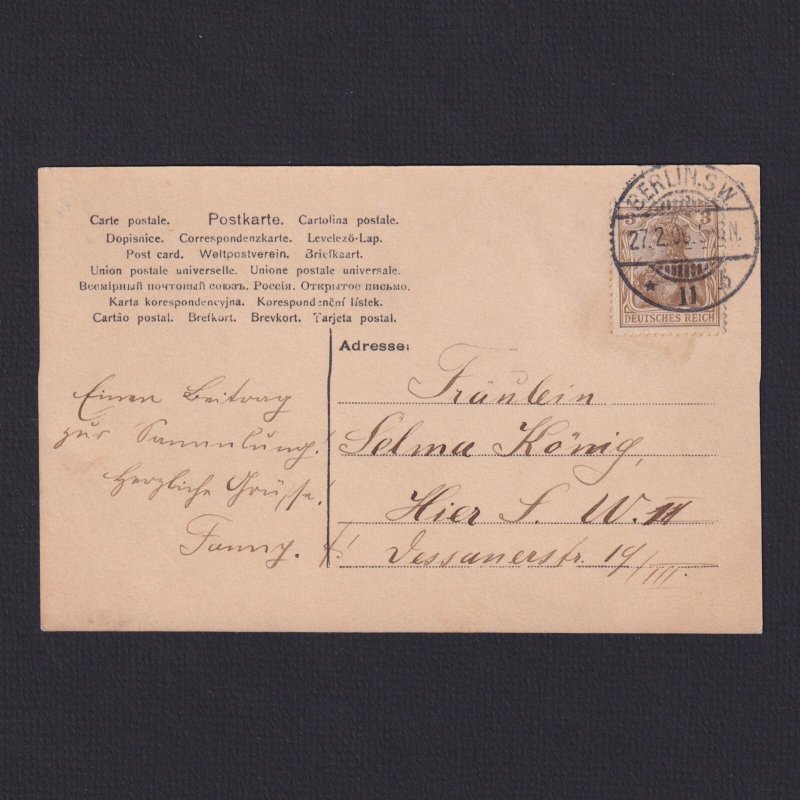 Carte postale. Postkarte. Cartolina postale.
Dopisnice. Correspondenzkarte. Levelező-Lap.
Post card. Weltpostverein. Briefkaart.
Union postale universelle. Unione postale universale.
Всемірный почтовый союзъ. Россія. Открытое письмо.
Karta korespondencyjna. Korespondenční lístek.
Cartão postal. Brefkort. Brevkort. Tarjeta postal.
BERLIN.S.W.
3 3
27.2.06. N.
* 11
DEUTSCHES REICH
Adresse:
Einen Beitrag
zur Sammlung!
Herzliche Grüsse!
Fanny.
Fräulein
Selma König,
Hier S. W. 11
Dessauerstr. 19/III.